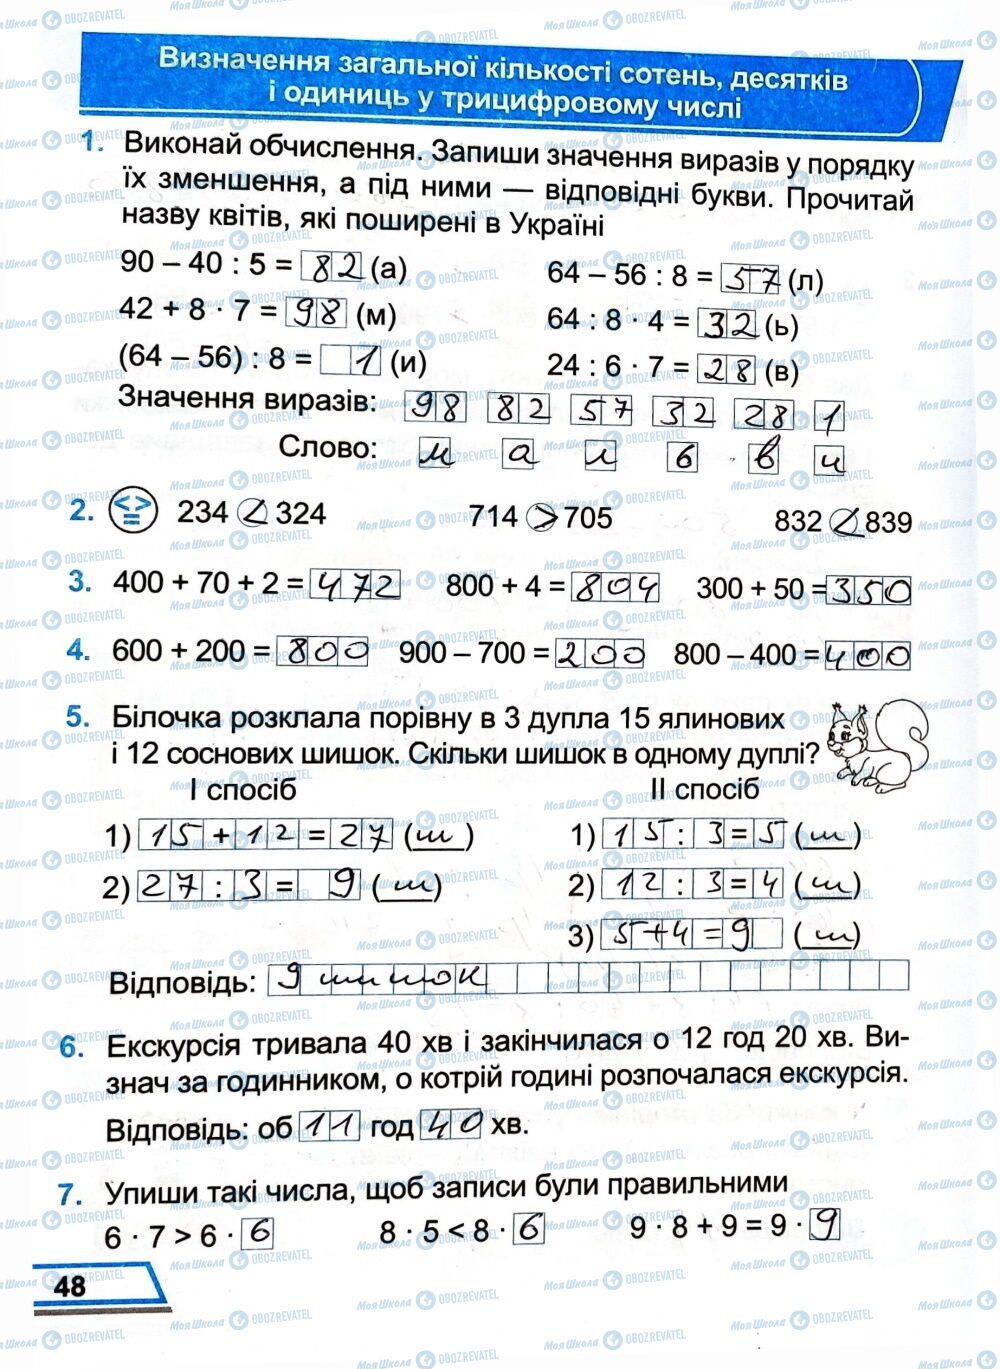 Визначення загальної кількості сотень, десятків
і одиниць у трицифровому числі
1. Виконай обчислення. Запиши значення виразів у порядку
їх зменшення, а під ними — відповідні букви. Прочитай
назву квітів, які поширені в Україні
90 – 40 : 5 = 82 (а) 64 – 56 : 8 = 57 (л)
42 + 8 · 7 = 98 (м) 64 : 8 · 4 = 32 (ь)
(64 – 56) : 8 = 1 (и) 24 : 6 · 7 = 28 (в)
Значення виразів: 98 82 57 32 28 1
Слово: м а л ь в и
2. 234 < 324 714 > 705 832 < 839
3. 400 + 70 + 2 = 472 800 + 4 = 804 300 + 50 = 350
4. 600 + 200 = 800 900 – 700 = 200 800 – 400 = 400
5. Білочка розклала порівну в 3 дупла 15 ялинових
і 12 соснових шишок. Скільки шишок в одному дуплі?
І спосіб ІІ спосіб
1) 15 + 12 = 27 (ш) 1) 15 : 3 = 5 (ш)
2) 27 : 3 = 9 (ш) 2) 12 : 3 = 4 (ш)
3) 5 + 4 = 9 (ш)
Відповідь: 9 шишок
6. Екскурсія тривала 40 хв і закінчилася о 12 год 20 хв. Ви-
знач за годинником, о котрій годині розпочалася екскурсія.
Відповідь: об 11 год 40 хв.
7. Упиши такі числа, щоб записи були правильними
6 · 7 > 6 · 6 8 · 5 < 8 · 6 9 · 8 + 9 = 9 · 9
48
МояШкола OBOZREVATEL